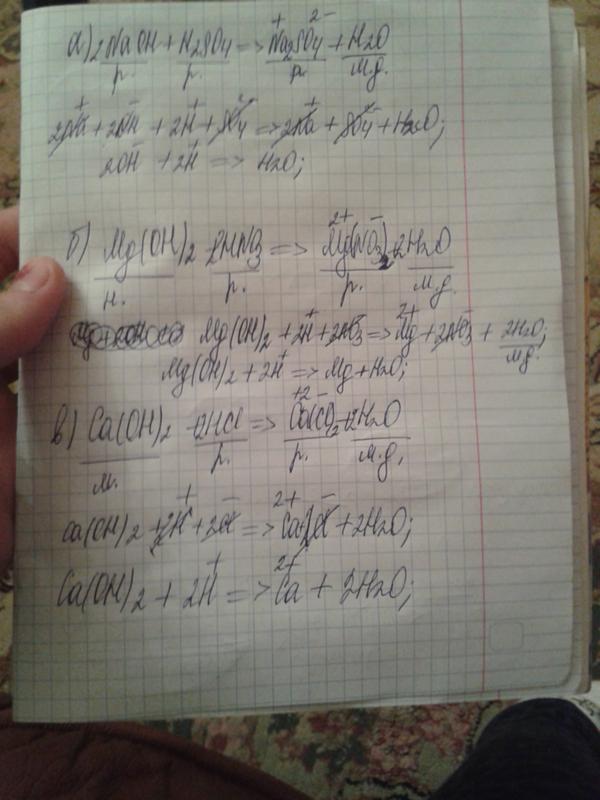 а) 2NaOH + H2SO4 => Na2⁺SO4²⁻ + H2O
р. р. р. м.д.
2Na⁺ + 2OH⁻ + 2H⁺ + SO4²⁻ => 2Na⁺ + SO4²⁻ + H2O;
2OH⁻ + 2H⁺ => H2O;
б) Mg(OH)2 + 2HNO3 => Mg²⁺(NO3)⁻2 + 2H2O
н. р. р. м.д.
Mg(OH)2 + 2H⁺ + 2NO3⁻ => Mg²⁺ + 2NO3⁻ + 2H2O;
м.д.
Mg(OH)2 + 2H⁺ => Mg + H2O;
в) Ca(OH)2 + 2HCl => Ca⁺²Cl⁻2 + 2H2O
м. р. р. м.д.
Ca(OH)2 + 2H⁺ + 2Cl⁻ => Ca²⁺ + 2Cl⁻ + 2H2O;
Ca(OH)2 + 2H⁺ => Ca²⁺ + 2H2O;